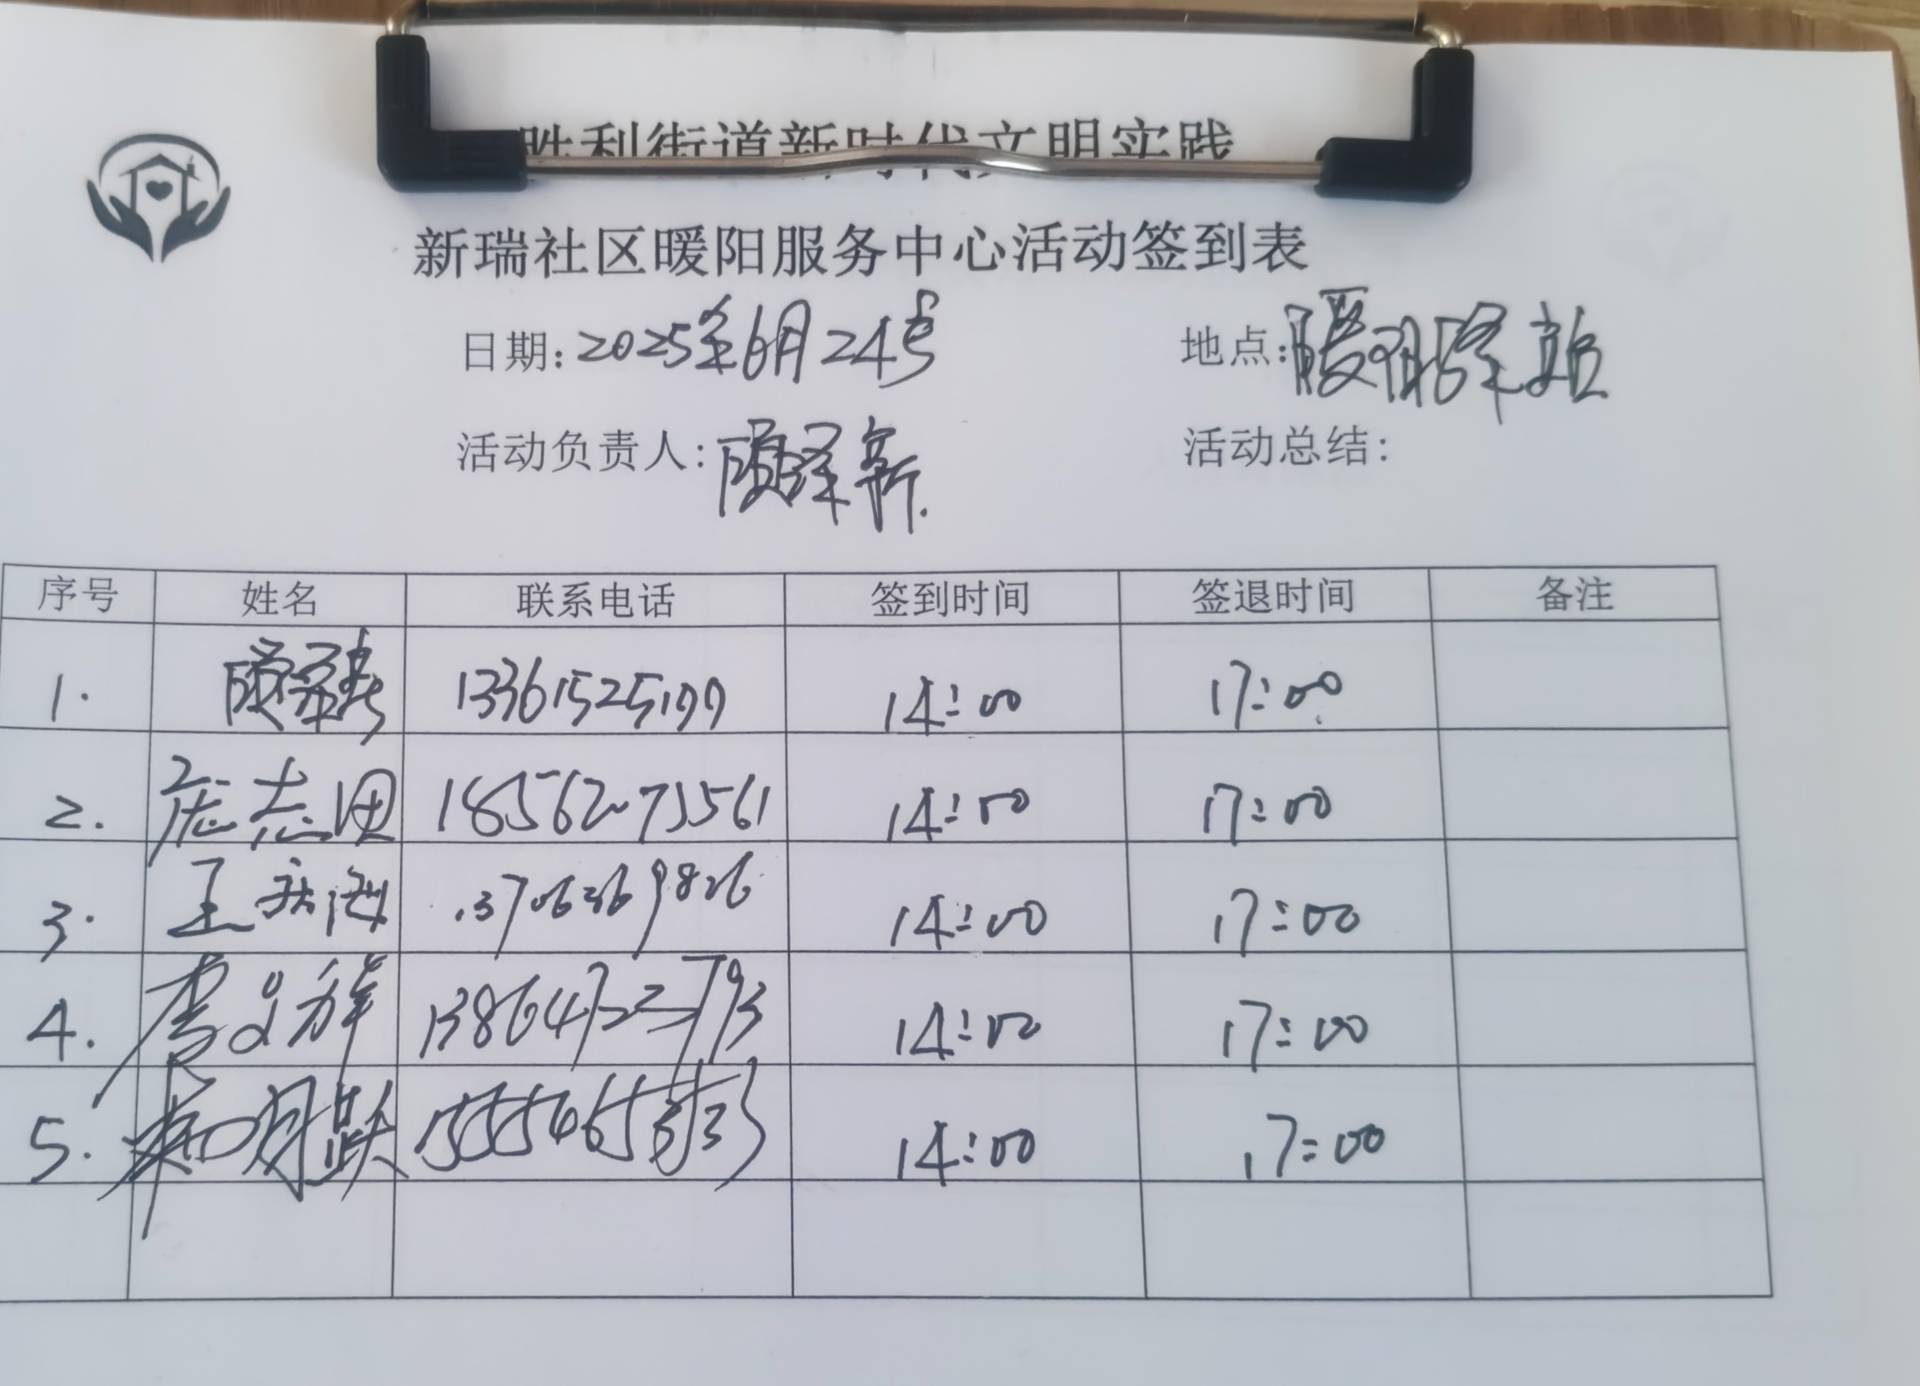 胜利街道新时代文明实践
新瑞社区暖阳服务中心活动签到表
日期：2025年6月24号 地点：暖阳驿站
活动负责人： 活动总结：
序号 姓名 联系电话 签到时间 签退时间 备注
1. 14:00 17:00
2. 志田 18562073561 14:00 17:00
3. 王庆海 13706369826 14:00 17:00
4. 李义祥 14:00 17:00
5. 明跃 14:00 17:00